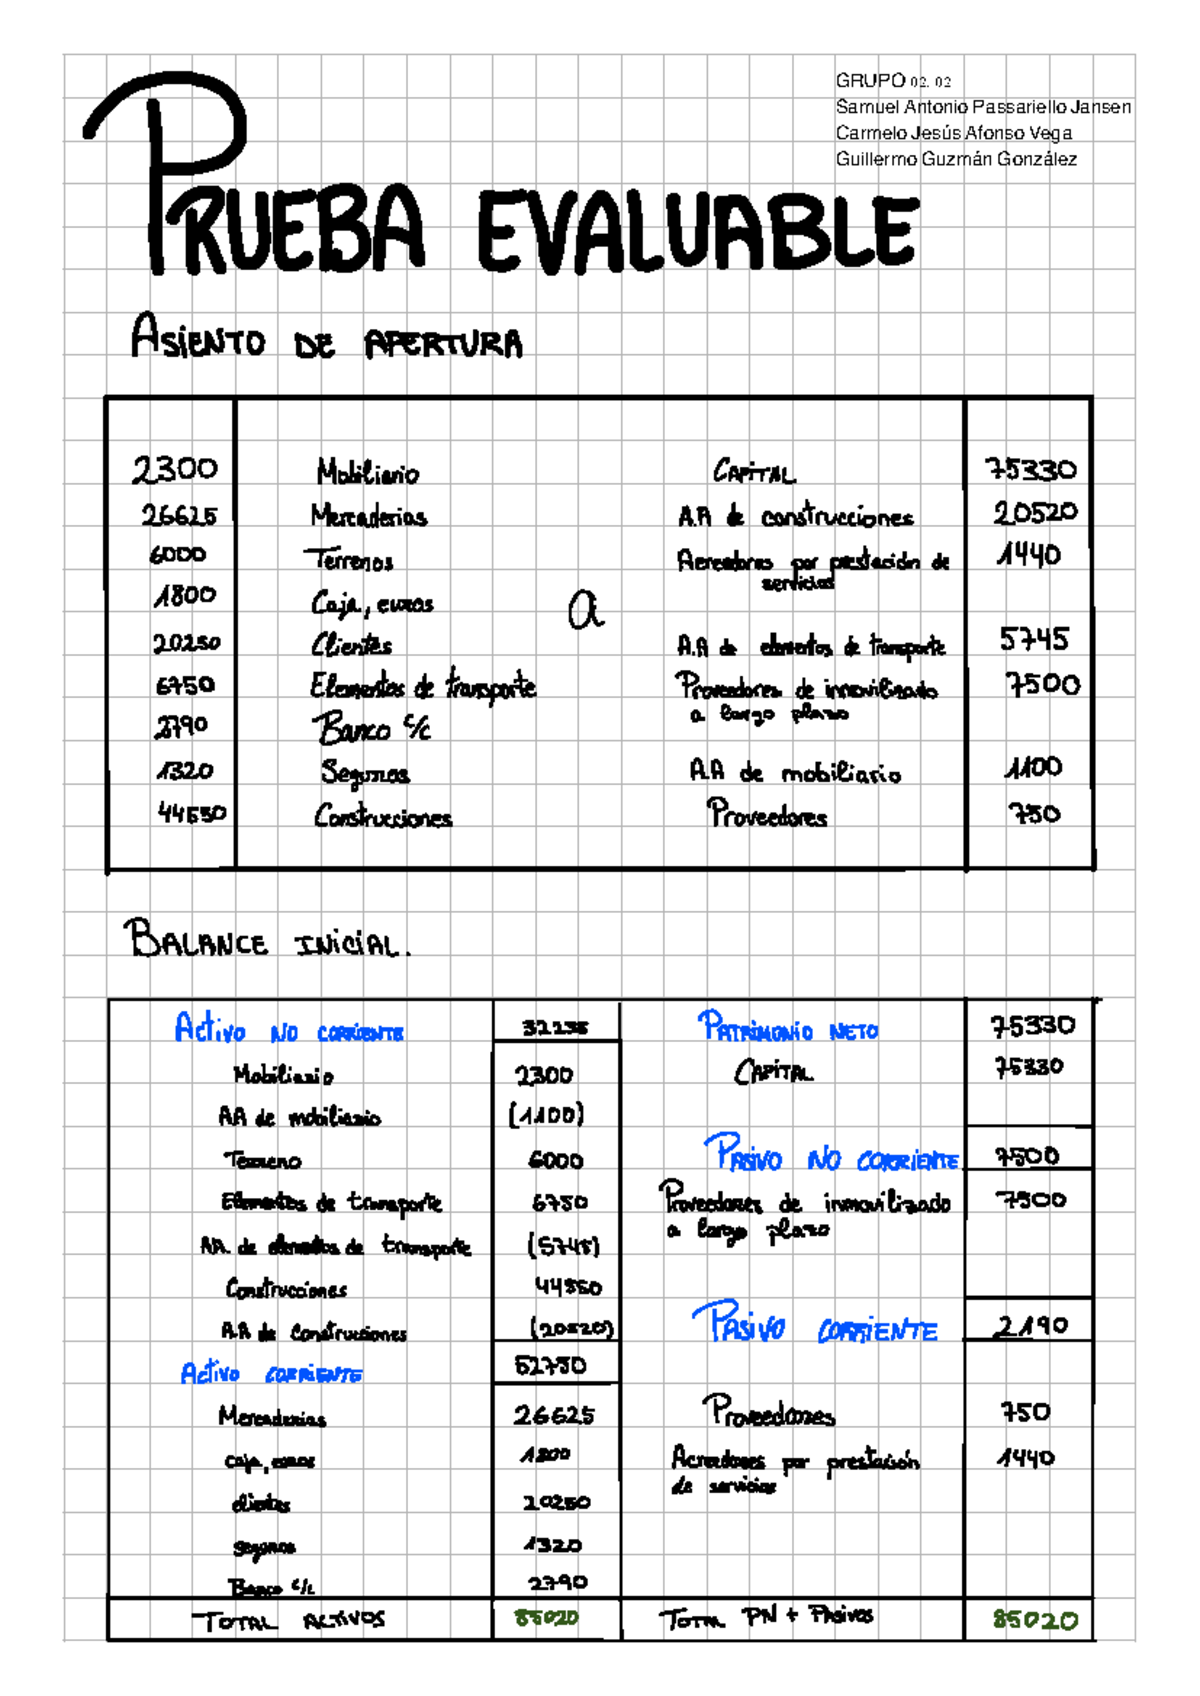 GRUPO 02. 02
Samuel Antonio Passariello Jansen
Carmelo Jesús Afonso Vega
Guillermo Guzmán González
PRUEBA EVALUABLE
ASIENTO DE APERTURA
2300 Mobiliario CAPITAL 75330
26625 Mercaderias A.A de construcciones 20520
6000 Terrenos Acreedores por prestación de servicios 1440
1800 Caja, euros a
20250 Clientes A.A de elementos de transporte 5745
6750 Elementos de transporte Proveedores de inmovilizado a largo plazo 7500
2790 Banco c/c
1320 Seguros A.A de mobiliario 1100
44550 Construcciones Proveedores 750
BALANCE INICIAL.
Activo NO CORRIENTE 32235 PATRIMONIO NETO 75330
Mobiliario 2300 CAPITAL 75330
AA de mobiliario (1100)
Terreno 6000 PASIVO NO CORRIENTE 7500
Elementos de transporte 6750 Proveedores de inmovilizado a largo plazo 7500
AA. de elementos de transporte (5745)
Construcciones 44550
A.A de Construcciones (20520) PASIVO CORRIENTE 2190
Activo CORRIENTE 52780
Mercaderias 26625 Proveedores 750
caja, euros 1800 Acreedores por prestación de servicios 1440
clientes 20250
seguros 1320
Banco c/c 2790
TOTAL ACTIVOS 85020 TOTAL PN + PAsivos 85020